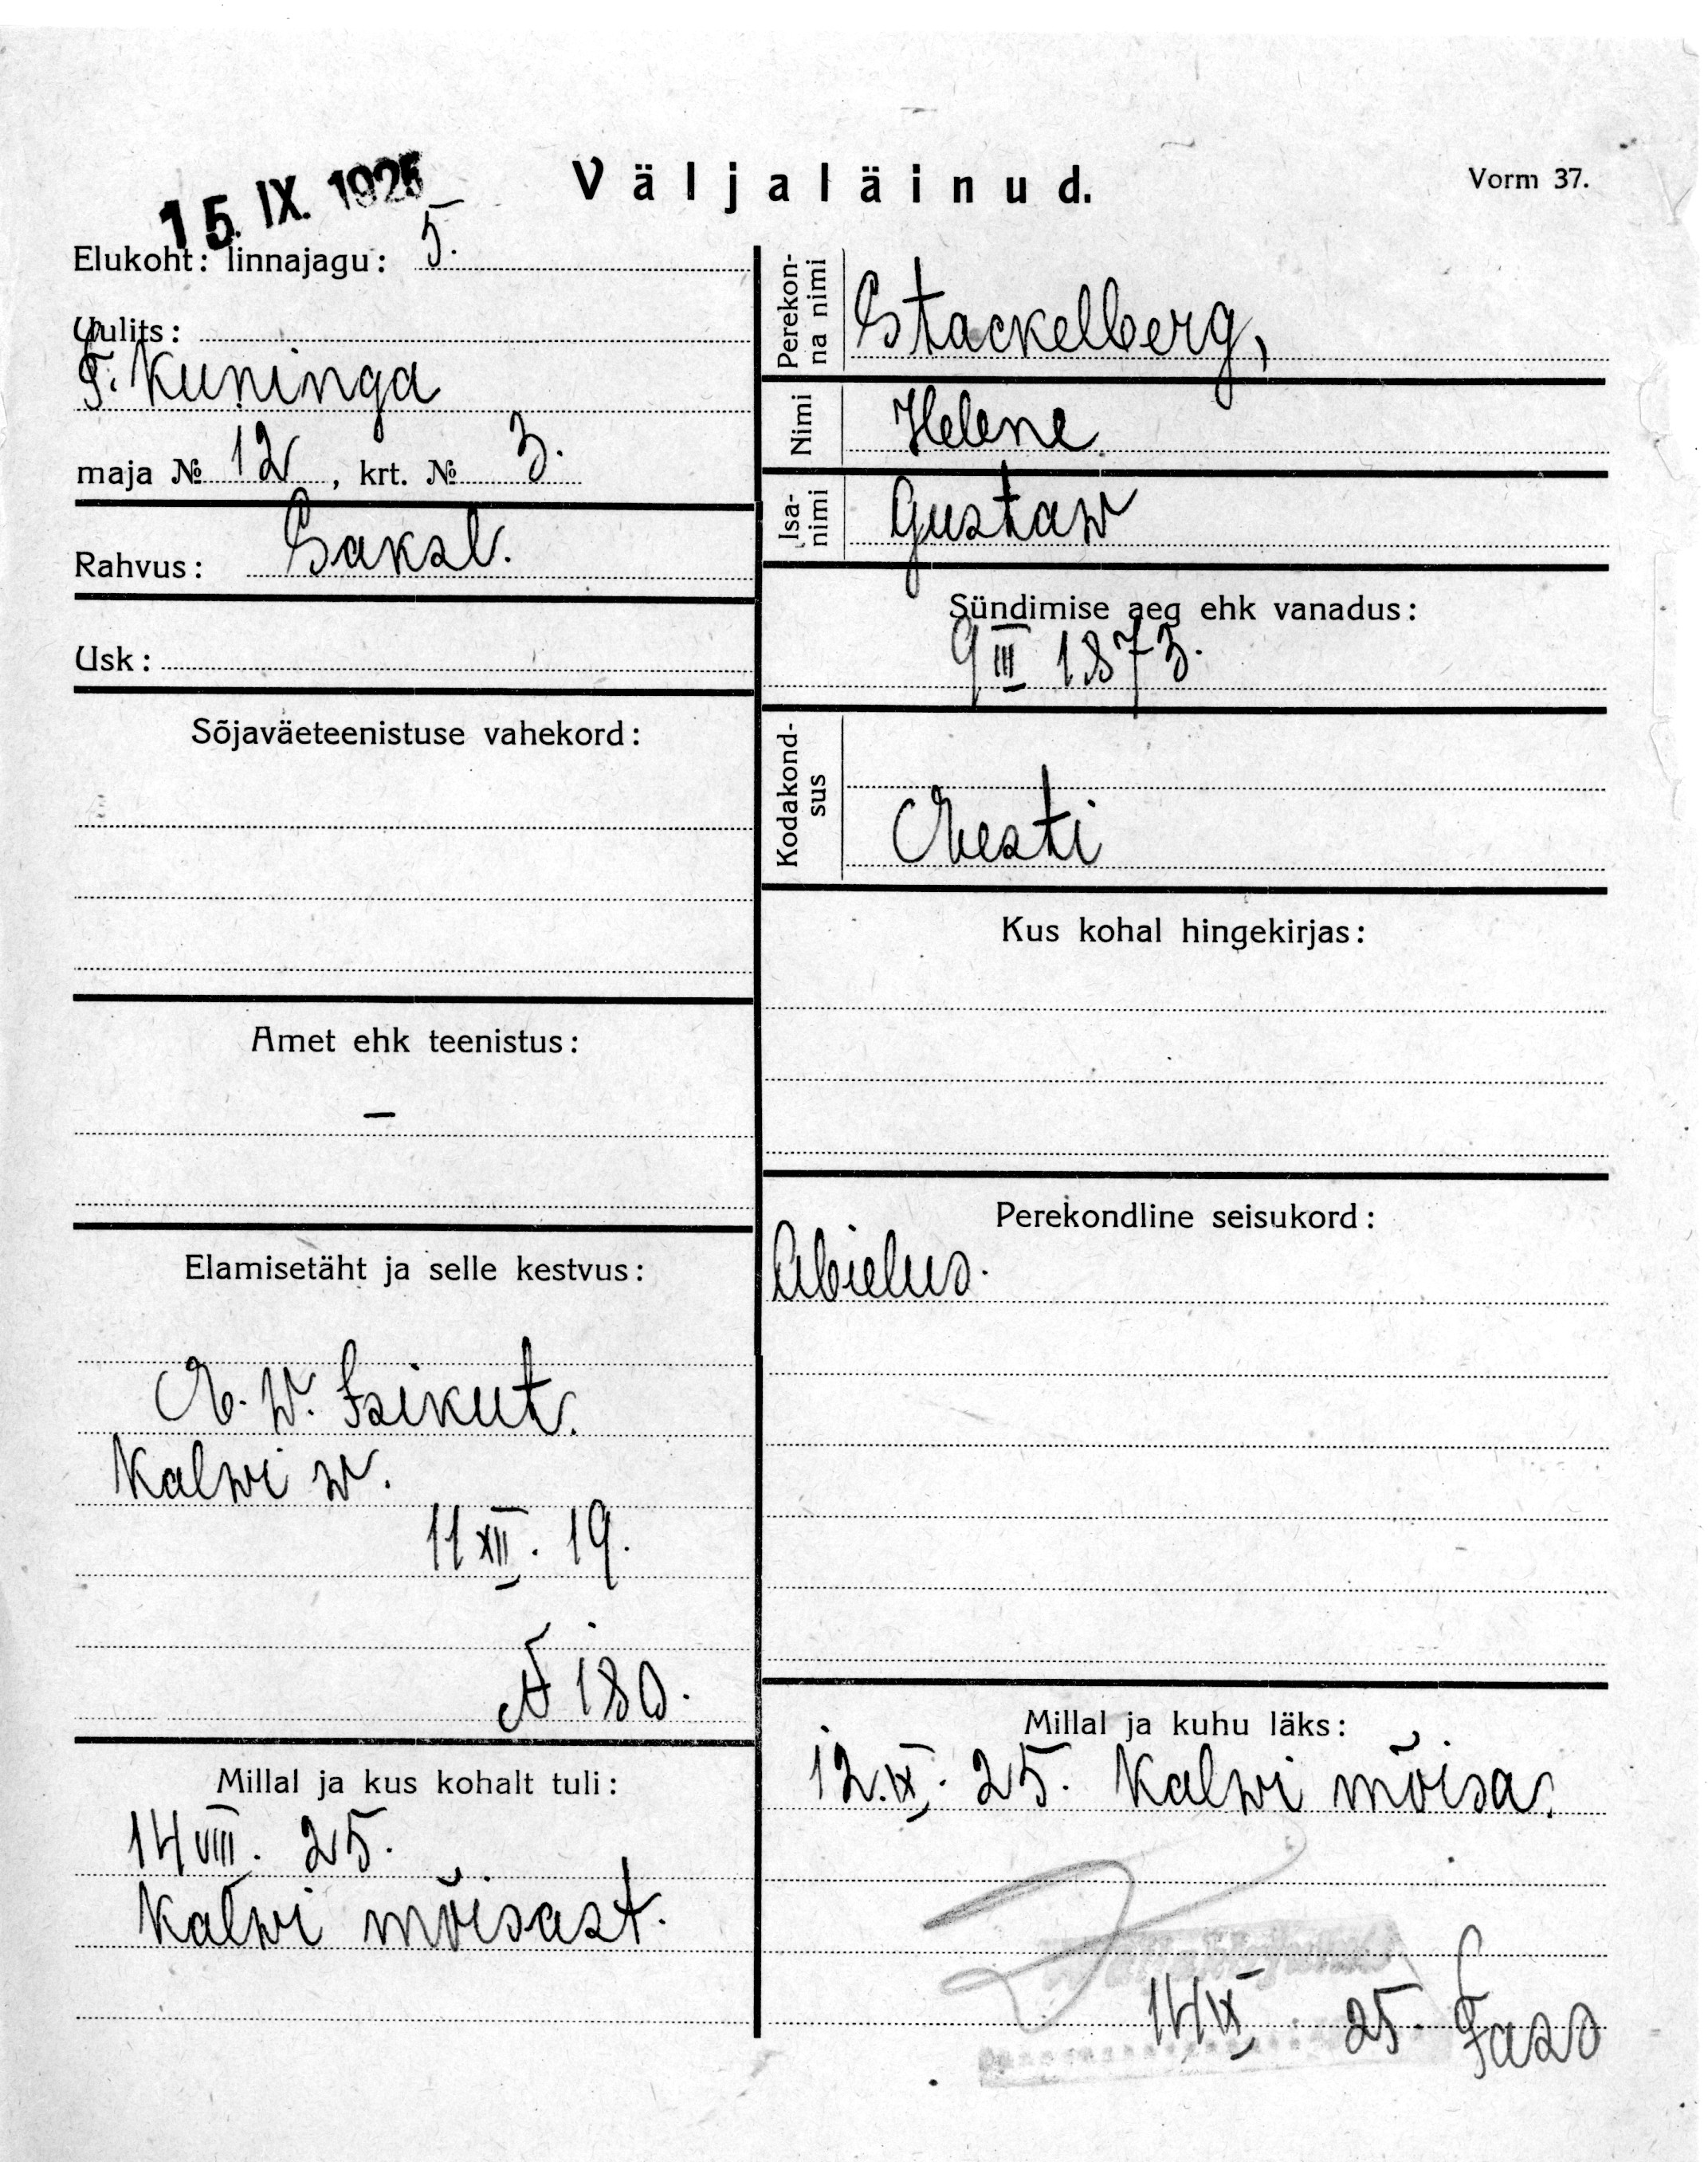 15. IX. 1925
Väljaläinud.
Vorm 37.
Elukoht: linnajagu: 5.
Uulits:
T. Kuninga
maja № 12, krt. № 3.
Rahvus: Saksl.
Usk:
Sõjaväeteenistuse vahekord:
Amet ehk teenistus:
—
Elamisetäht ja selle kestvus:
E. W. Isikut.
Kalwi w.
11 XII. 19.
№ 180.
Millal ja kus kohalt tuli:
14 VIII. 25.
Kalwi mõisast.
Perekon-
na nimi
Stackelberg,
Nimi
Helene
Isa-
nimi
Gustaw
Sündimise aeg ehk vanadus:
9 III 1873.
Kodakond-
sus
Eesti
Kus kohal hingekirjas:
Perekondline seisukord:
Abielus.
Millal ja kuhu läks:
12. IX. 25. Kalwi mõisa.
14 IX. 25.